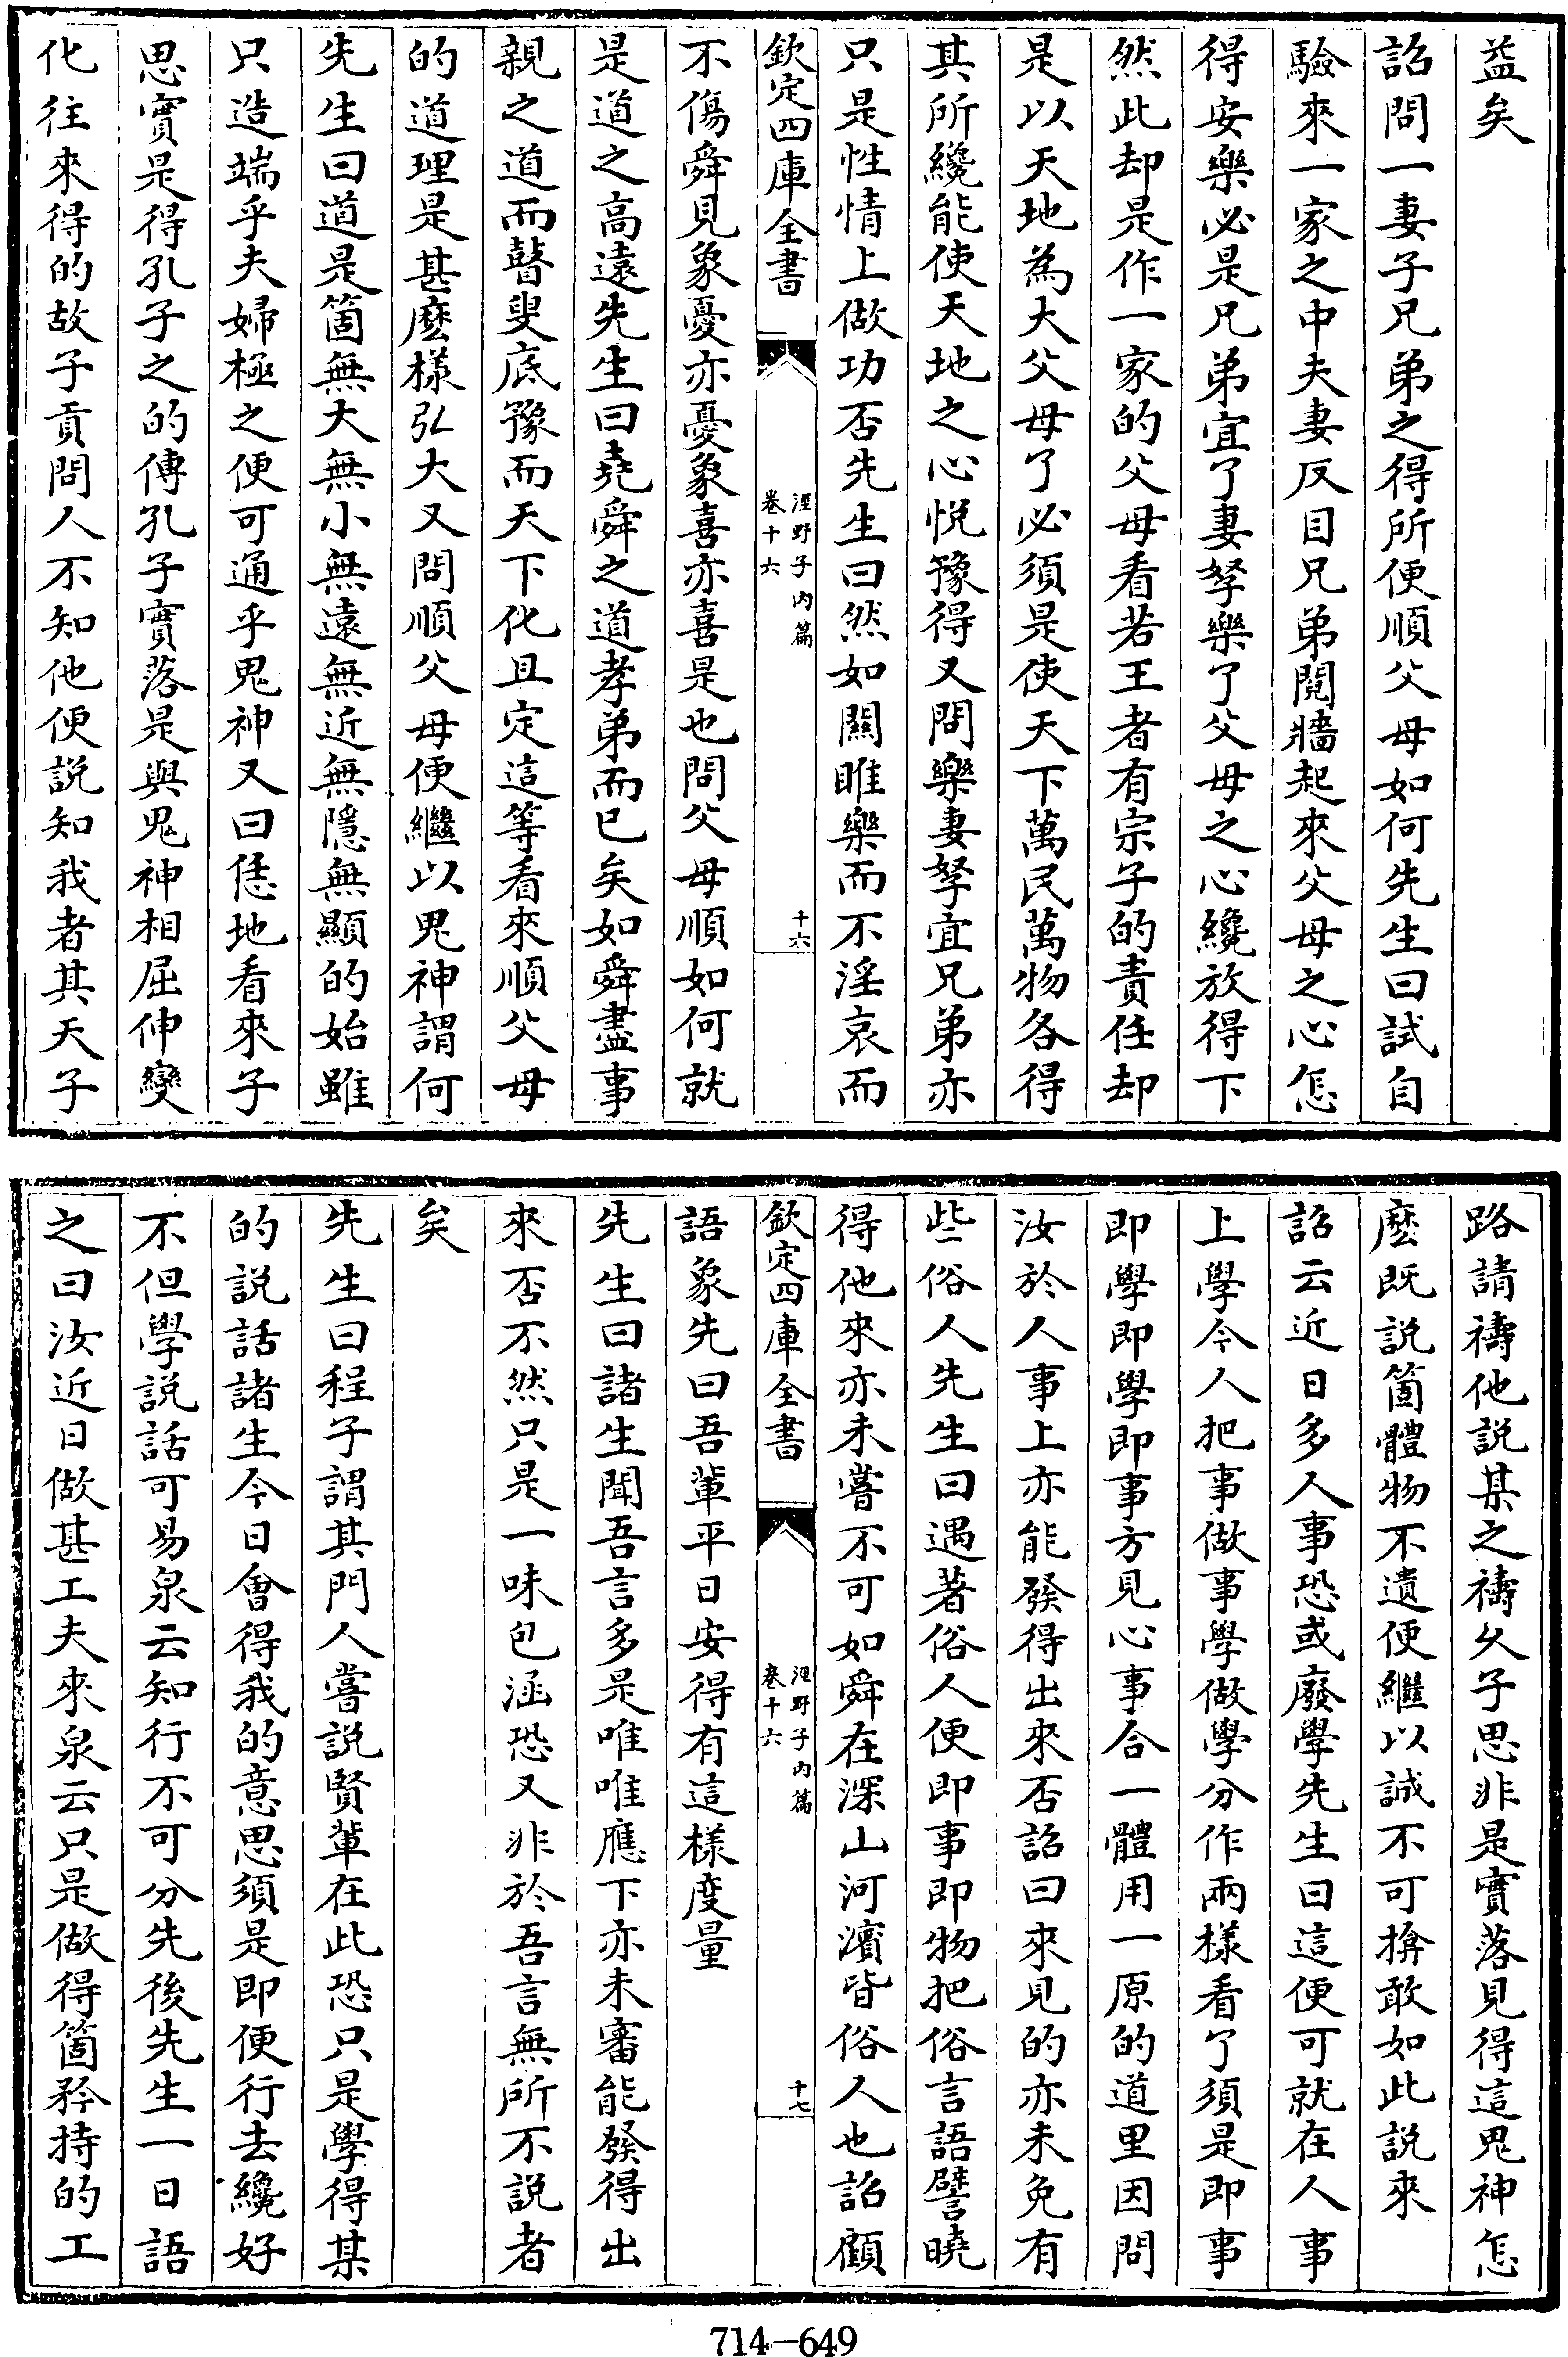 益矣
詔問一妻子兄弟之得所便順父母如何先生曰試自
驗來一家之中夫妻反目兄弟鬩牆起來父母之心怎
得安樂必是兄弟宜了妻孥樂了父母之心纔放得下
然此却是作一家的父母看若王者有宗子的責任却
是以天地為大父母了必須是使天下萬民萬物各得
其所纔能使天地之心悅豫得又問樂妻孥宜兄弟亦
只是性情上做功否先生曰然如關雎樂而不淫哀而
欽定四庫全書
涇野子内篇
卷十六
十六
不傷舜見象憂亦憂象喜亦喜是也問父母順如何就
是道之高遠先生曰堯舜之道孝弟而已矣如舜盡事
親之道而瞽叟底豫而天下化且定這等看來順父母
的道理是甚麽樣弘大又問順父母便繼以鬼神謂何
先生曰道是箇無大無小無遠無近無隱無顯的始雖
只造端乎夫婦極之便可通乎鬼神又曰恁地看來子
思實是得孔子之的傳孔子實落是與鬼神相屈伸變
化往來得的故子貢問人不知他便說知我者其天子
路請禱他說某之禱久子思非是實落見得這鬼神怎
麽既說箇體物不遺便繼以誠不可揜敢如此說來
詔云近日多人事恐或廢學先生曰這便可就在人事
上學今人把事做事學做學分作兩樣看了須是即事
即學即學即事方見心事合一體用一原的道里因問
汝於人事上亦能發得出來否詔曰來見的亦未免有
些俗人先生曰遇著俗人便即事即物把俗言語譬曉
得他來亦未嘗不可如舜在深山河濱皆俗人也詔顧
欽定四庫全書
涇野子内篇
卷十六
十七
語象先曰吾輩平日安得有這樣度量
先生曰諸生聞吾言多是唯唯應下亦未審能發得出
來否不然只是一味包涵恐又非於吾言無所不說者
矣
先生曰程子謂其門人嘗說賢輩在此恐只是學得某
的說話諸生今日會得我的意思須是即便行去纔好
不但學說話可易泉云知行不可分先後先生一日語
之曰汝近日做甚工夫來泉云只是做得箇矜持的工
714—649